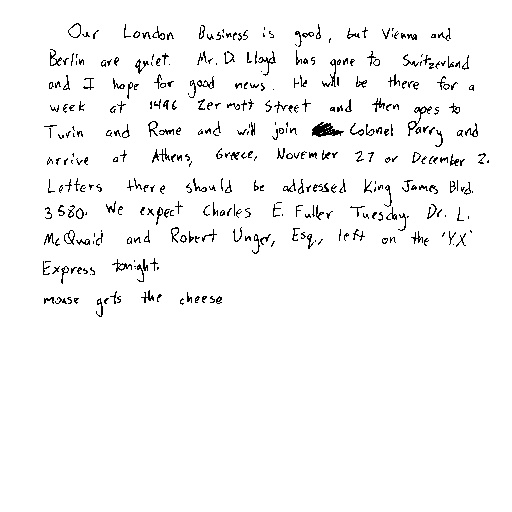 Our London Business is good, but Vienna and
Berlin are quiet. Mr. D. Lloyd has gone to Switzerland
and I hope for good news. He will be there for a
week at 1496 Zermott Street and then goes to
Turin and Rome and will join Colonel Parry and
arrive at Athens, Greece, November 27 or December 2.
Letters there should be addressed King James Blvd.
3580. We expect Charles E. Fuller Tuesday. Dr. L.
McQuaid and Robert Unger, Esq., left on the 'Y.X'
Express tonight.
mouse gets the cheese